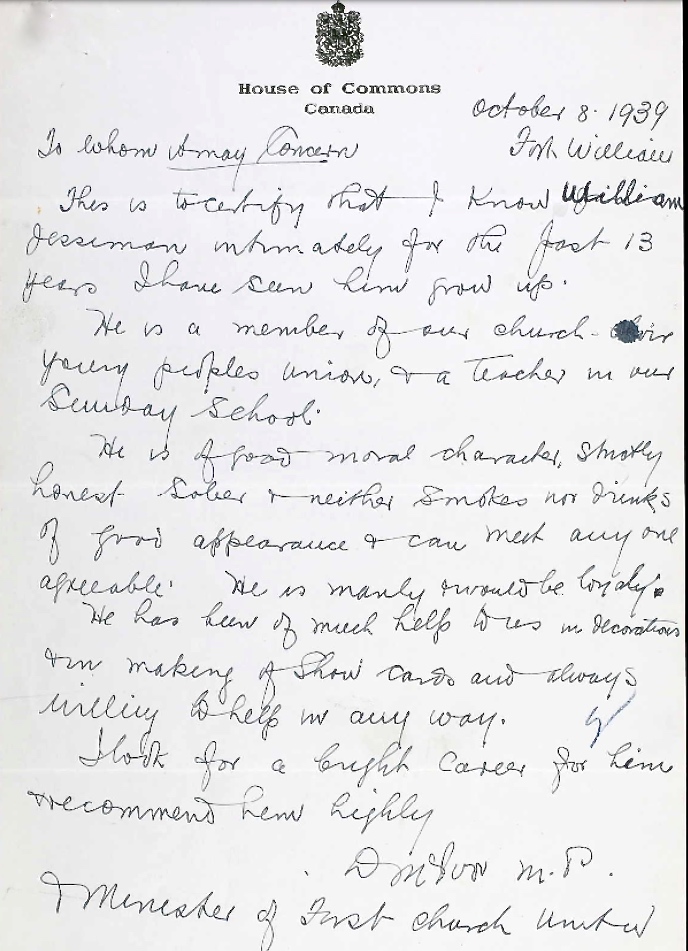 House of Commons
Canada
October 8. 1939
To Whom it may Concern
Fort William
This is to certify that I know William
Jessiman intimately for the past 13
years I have seen him grow up.
He is a member of our church-
young peoples union, & a teacher in our
Sunday School.
He is of good moral character, strictly
honest sober & neither smokes nor drinks
of good appearance & can meet any one
agreeable. He is manly & would be
He has been of much help to us in decorations
& in making of Show cards and always
willing to help in any way.
I look for a bright career for him
& recommend him highly
D McIvor M.P.
& Minister of First Church United